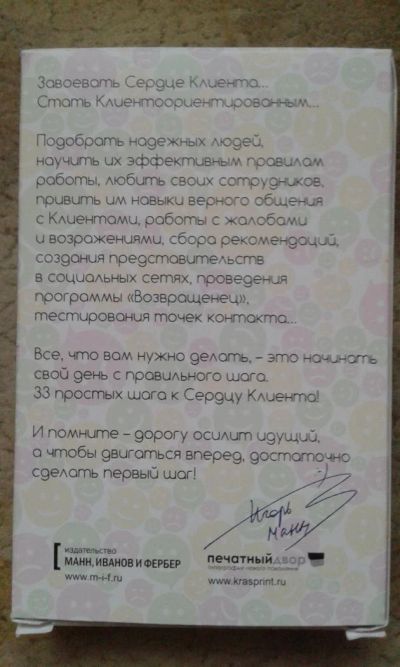 Завоевать Сердце Клиента...
Стать Клиентоориентированным...
Подобрать надежных людей,
научить их эффективным правилам
работы, любить своих сотрудников,
привить им навыки верного общения
с Клиентами, работы с жалобами
и возражениями, сбора рекомендаций,
создания представительств
в социальных сетях, проведения
программы «Возвращенец»,
тестирования точек контакта...
Все, что вам нужно делать, – это начинать
свой день с правильного шага.
33 простых шага к Сердцу Клиента!
И помните – дорогу осилит идущий,
а чтобы двигаться вперед, достаточно
сделать первый шаг!
:-)
Игорь
Манн
издательство
МАНН, ИВАНОВ И ФЕРБЕР
www.m-i-f.ru
печатныйдвор
типография нового поколения
www.krasprint.ru